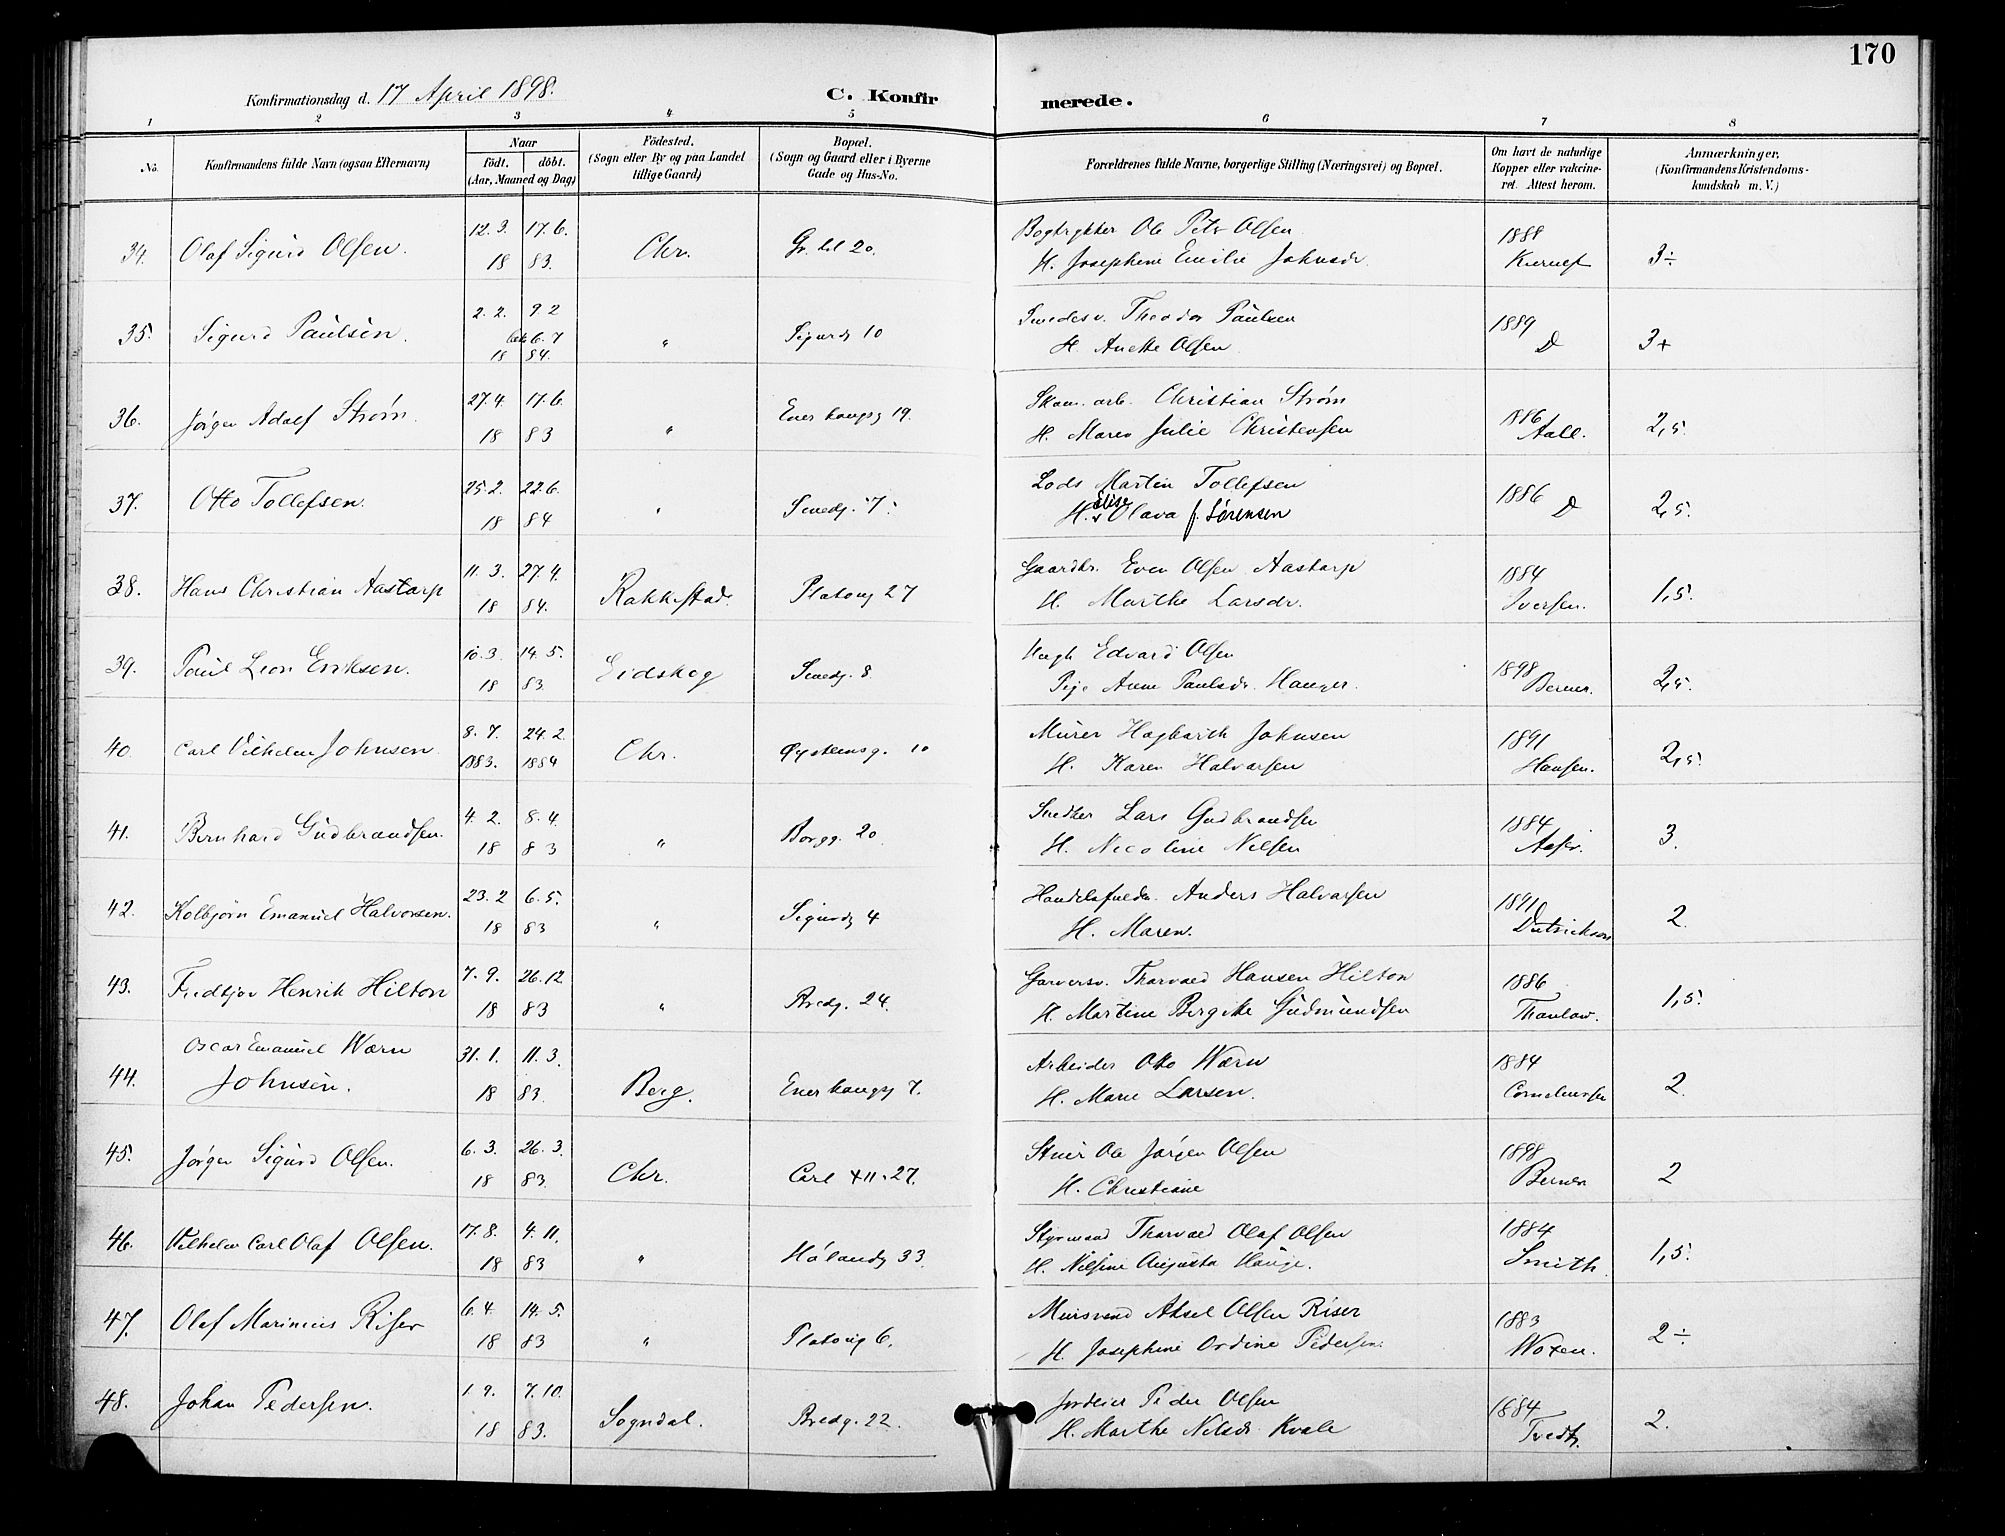 170
Konfirmationsdag d. 17 April 1898.
C. Konfirmerede.
1 2 3 4 5 6 7 8
No. | Konfirmandens fulde Navn (ogsaa Efternavn) | Naar födt. döbt. (Aar, Maaned og Dag) | Födested. (Sogn eller By og paa Landet tillige Gaard) | Bopæl. (Sogn og Gaard eller i Byerne Gade og Hus-No. | Forældrenes fulde Navne, borgerlige Stilling (Næringsvei) og Bopæl. | Om havt de naturlige Kopper eller vakcineret. Attest herom. | Anmærkninger. (Konfirmandens Kristendomskundskab m. V.)
34. Olaf Sigurd Olsen. 12.3. 17.6. 18 83. Chr. 20. Bogtrykker Ole Peter Olsen 1888 3÷
H. Josephine Emilie Johnsdr.
35. Sigurd Paulsen. 2.2. 9 2 6.7 18 84. " Sigurdg 10 Theodor Paulsen 1889 D 3+
H. Anette Olsen
36. Jörgen Adolf Ström. 27.4. 17.6. 18 83 " Enerhaugsg 19. Skom. arb. Christian Ström 1886 Aall. 2,5.
H. Maren Julie Christensen
37. Otto Tollefsen. 25.2. 22.6. 18 84 " Smedg. 7. Lods Martin Tollefsen 1886 D 2,5.
H. Elise Olava f. Sørensen
38. Hans Christian Aastarp 11.3. 27.4. 18 84. Rakkestad. Platoug 27 Gaardbr. Even Olsen Aastarp 1884 Iversen. 1,5.
H. Marthe Larsdr.
39. Paul Leon Eriksen. 10.3. 14.5. 18 83. Eidskog Smedg. 8. Ungk Edvard Olsen 1898 Berner. 2,5.
Pige Anne Paulsdr. Hanger.
40. Carl Vilhelm Johnsen 8.7. 24.2. 1883. 1884 Chr. Øysteinsg. 10 Murer Hagbarth Johnsen 1891 Hansen. 2,5.
H. Karen Halvorsen
41. Bernhard Gudbrandsen. 4.2. 8.4. 18 83 " Borgg. 20. Snedker Lars Gudbrandsen 1884 3.
H. Nicoline Nilsen
42. Kolbjörn Emanuel Halvorsen. 23.2 6.5. 18 83 " Sigurdg 4 Handelsfuldm. Anders Halvorsen 1891 Dietrickson 2.
H. Maren.
43. Fredtjov Henrik Hilton 7.9. 26.12. 18 83 " Bredg. 24. Garversv. Thorvald Hansen Hilton 1886 Thaulow. 1,5.
H. Martine Bergitte Gudmundsen
44. Oscar Emanuel Wærn Johnsen. 31.1. 11.3. 18 83. Berg. Enerhaugsg 7. Arbeider Otto Wærn 1884 Corneliussen 2.
H. Marie Larsen.
45. Jörgen Sigurd Olsen. 6.3. 26.3. 18 83. Chr. Carl XII. 27. Stuer Ole Jörgen Olsen 1898 Berner 2
H. Christiane
46. Vilhelm Carl Olaf Olsen. 17.8. 4.11. 18 83 " Hölandsg 33. Styrmand Thorvald Olaf Olsen 1884 Smith. 1,5.
H. Nilsine Augusta Hauge.
47. Olaf Marinius Riser 6.4. 14.5. 18 83 " Platoug 6. Mursvend Aksel Olsen Riser 1883 Woxen. 2÷.
H. Josephine Ordine Pedersen.
48. Johan Pedersen. 1.9. 7.10. 18 83. Sogndal. Bredg. 22. Jordeier Peder Olsen 1884 Tvedt. 2.
H. Marthe Nilsdr. Kvale